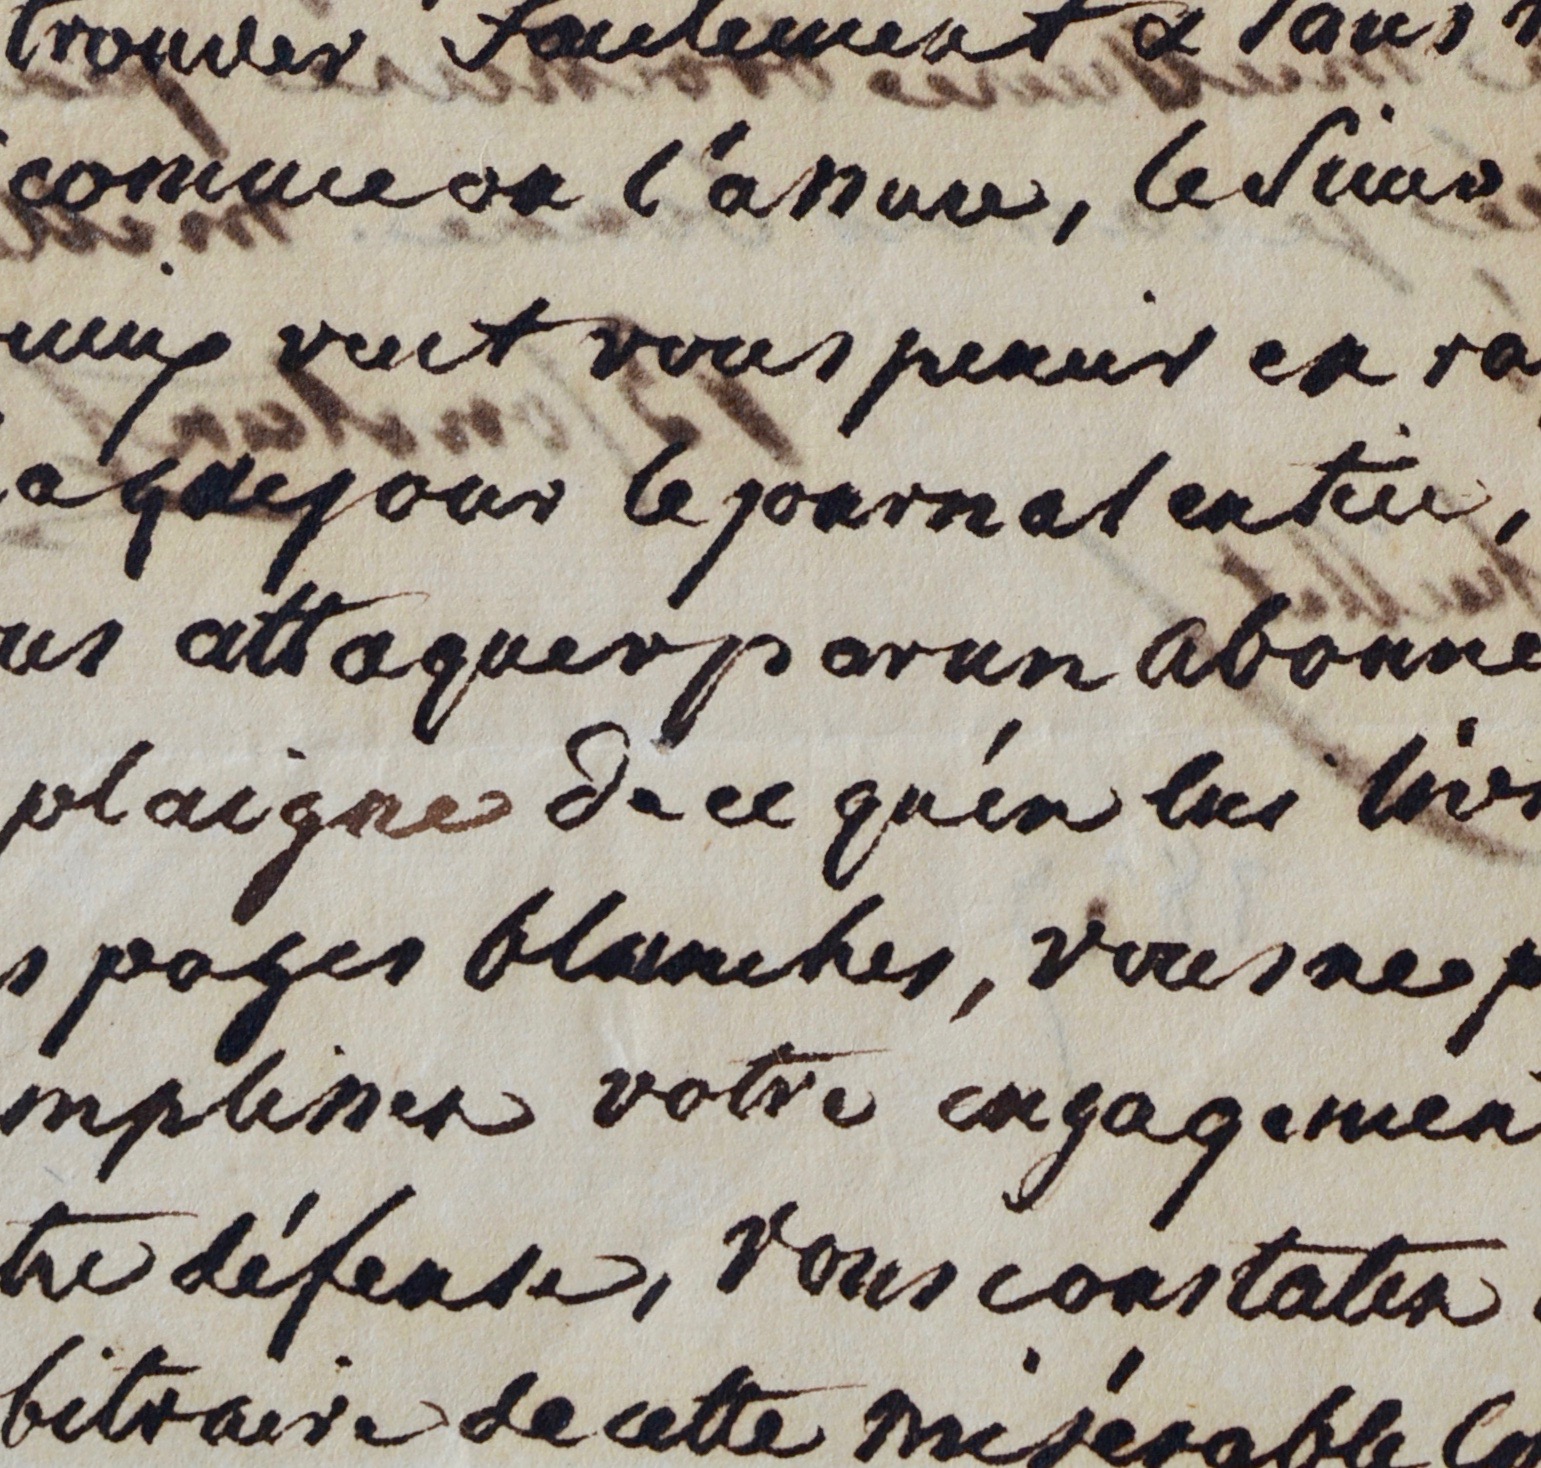 trouver seulement & sans
comme on l'assure, le
veut vous punir en ra
jour le journal entier,
us attaquer par un abonne
plaigne de ce qu'en lui livr
s pages blanches, vous ne p
votre engagement
tre défense, vous constatez
bitraire de cette misérable